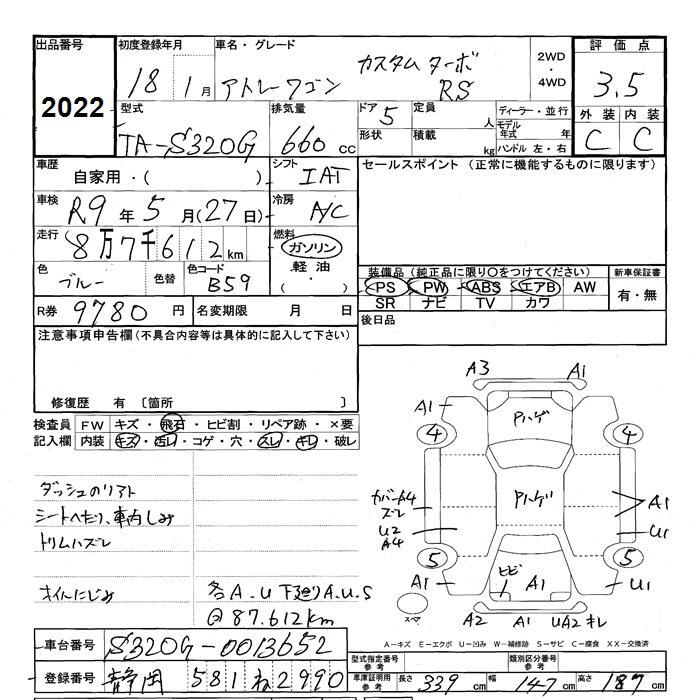 出品番号 初度登録年月 車名・グレード 評価点
2022 18 1月 アトレーワゴン カスタムターボ RS 2WD ・ 4WD 3.5
型式 排気量 ドア 5 定員 人 ディーラー・並行 外装 内装
TA-S320G 660 cc 形状 積載 kg モデル年式 年 ハンドル 左・右 C C
車歴 自家用・( ) シフト IAT セールスポイント (正常に機能するものに限ります)
車検 R9年5月(27日) 冷房 A/C
走行 8万7千612km 燃料 ガソリン・軽油・( )
色 ブルー 色替 色コード B59 装備品(純正品に限り○をつけてください) 新車保証書
PS PW ABS エアB AW 有・無
SR ナビ TV カワ
R券 9780円 名変期限 月 日 後日品
注意事項申告欄(不具合内容等は具体的に記入して下さい)
修復歴 有 〔箇所 〕
検査員 FW キズ・飛石・ヒビ割・リペア跡・×要
記入欄 内装 キズ・汚レ・コゲ・穴・スレ・キレ・破レ
ダッシュのリフト
シートへたり、車内しみ
トリムハズレ
オイルにじみ 各A.U 下廻りA.U.S
@87.612km
A3 A1
A1 Pハゲ
4 4
カバー A4 ズレ Pハゲ A1
U2 A4 U1
5 5
A1 ヒビ A1 U1
スペア A2 A1 UA2 キレ
A-キズ E-エクボ U-凹み W-補修跡 S-サビ C-腐食 XX-交換済
車台番号 S320G-0013652
型式指定番号 参考 類別区分番号 参考
登録番号 静岡 581 ね 2990 車庫証明用 参考 長さ 339cm 幅 147cm 高さ 187cm